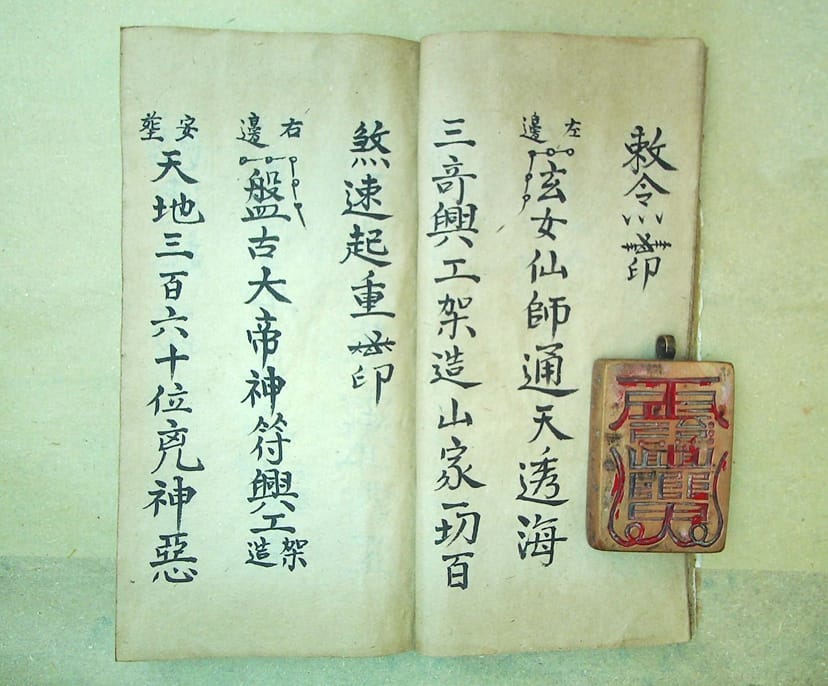 敕令印
左邊泫女仙師通天透海
三竒興工架造山家一切百
煞速起重印
右邊盤古大帝神符興工架造
安塟天地三百六十位兇神惡